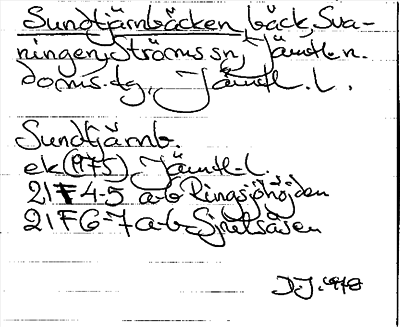 Sundtjärnbäcken, bäck, Sva-
ningen, Ströms sn, Jämtl. n.
doms. dg, Jämtl. L.
Sundtjärnb.
ek (1975) Jämtl. L.
21F 4-5 a-b Ringsjöhöjden
21F 6-7 a-b
D.J. 1978